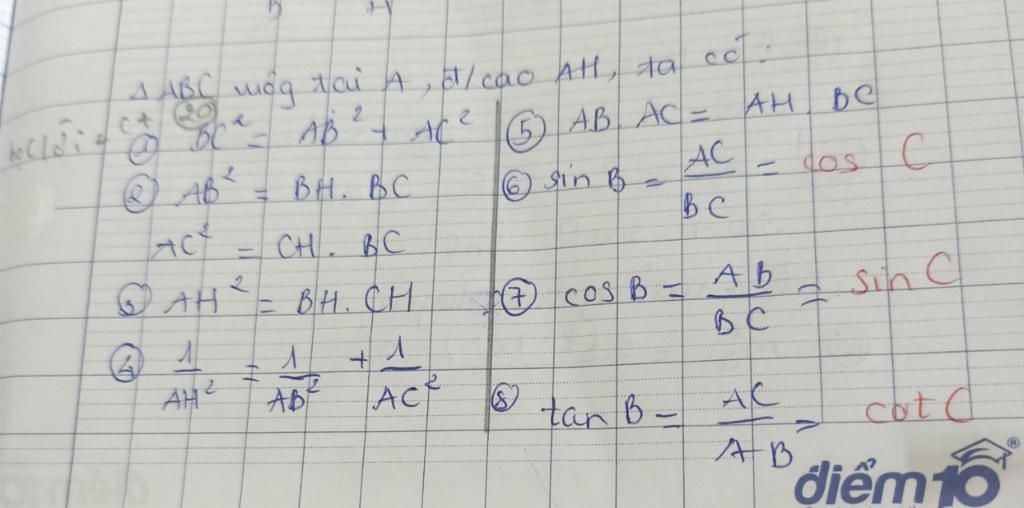 Δ ABC vuông tại A, đ/cao AH, ta có:
① BC² = AB² + AC²
② AB² = BH. BC
AC² = CH. BC
③ AH² = BH. CH
④ 1/AH² = 1/AB² + 1/AC²
⑤ AB. AC = AH. BC
⑥ sin B = AC/BC = cos C
⑦ cos B = AB/BC = sin C
⑧ tan B = AC/AB = cot C
điểm10